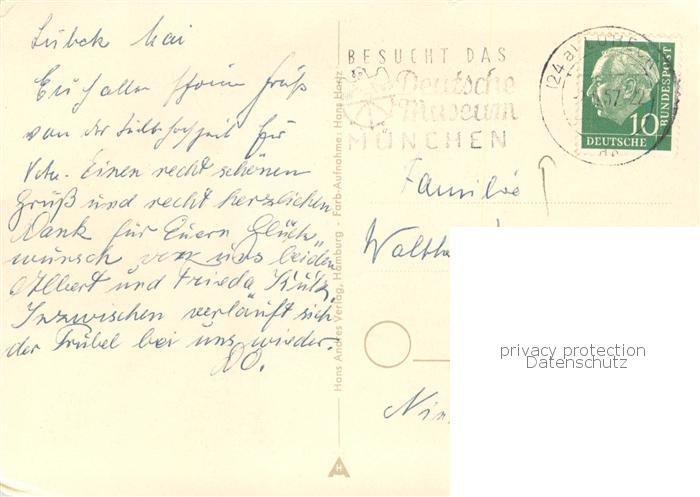 Lübeck Mai
Euch allen Gruß
von der Silberhochzeit für
Einen recht schönen
Gruß und recht herzlichen
Dank für Euern Glück-
wunsch von uns beiden
Albert und Frieda
Inzwischen verläuft sich
der Trubel bei uns wieder.
DO.
Hans Andres Verlag, Hamburg - Farb-Aufnahme: Hans Hartz
BESUCHT DAS
Deutsche
Museum
MÜNCHEN
(24a) LÜBECK
57
10
DEUTSCHE
BUNDESPOST
Familie
Walth
Nin
H
privacy protection
Datenschutz